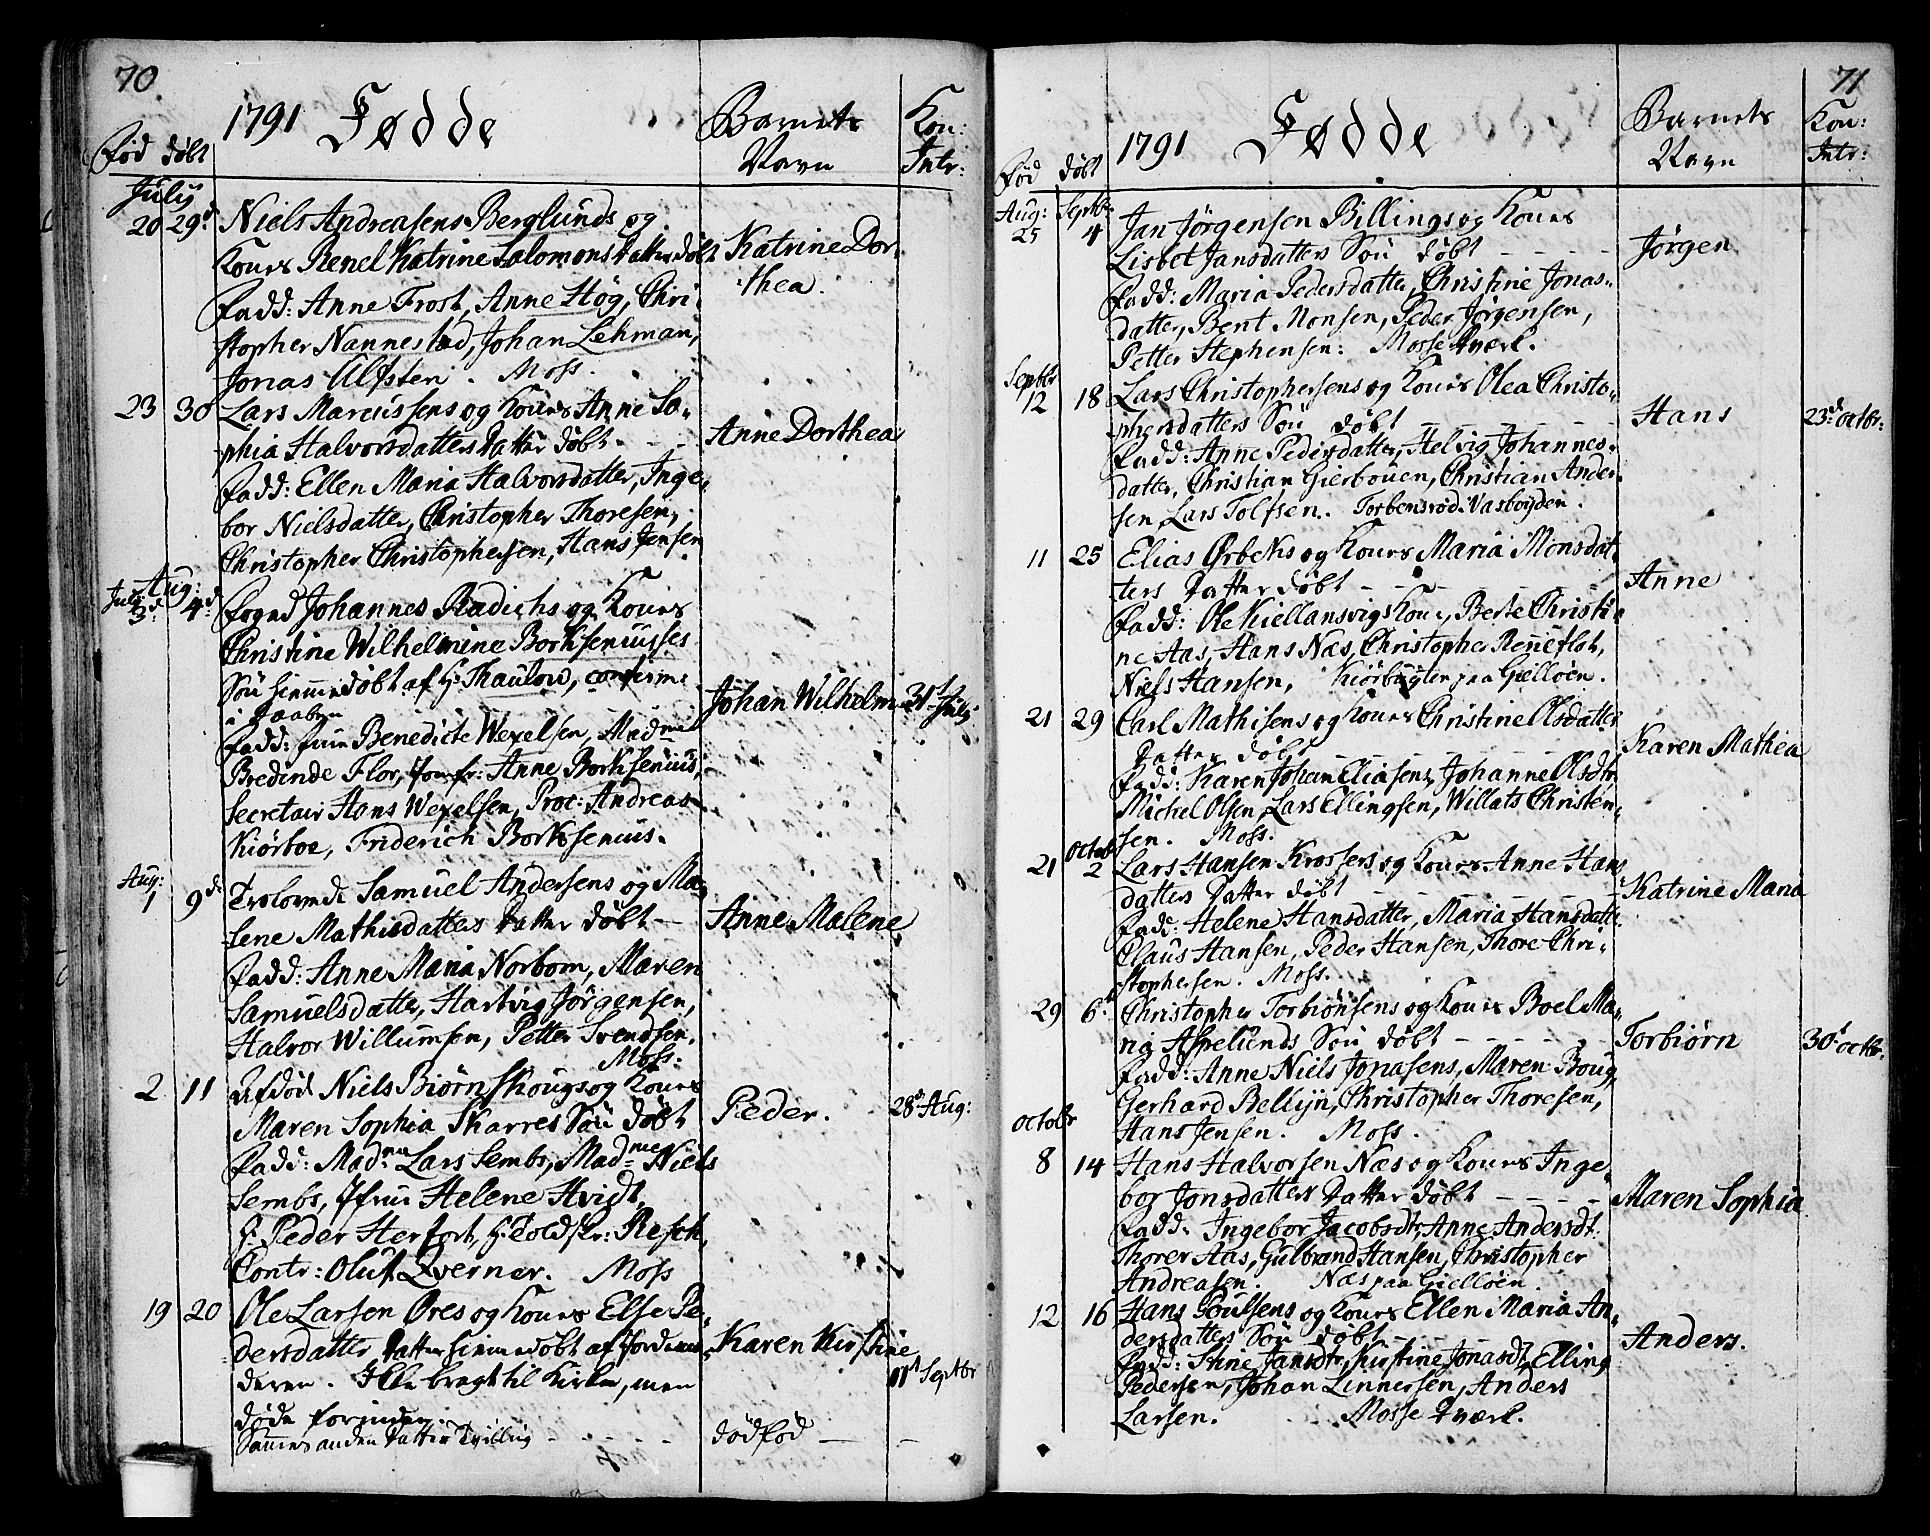 70
1791 Fødde
Barnets
Navn
Kon:
Intr:
Fød døbt
July
20 29d Niels Andreasens Berglunds og
Kones Renel Katrine Salomons datter døbt Katrine Dor-
thea.
Fadd: Anne Frost, Anne Høg, Chri-
stopher Nannestad, Johan Lehman,
Jonas Ulfsten. Moss.
23 30 Lars Marcussens og Kones Anne So-
phia Halvorsdatters datter døbt - - Anne Dorthea
Fadd: Ellen Maria Halvorsdatter, Inge-
bor Nielsdatter, Christopher Thoresen,
Christopher Christophersen, Hans Jensen
Aug:
July 3d 4d Foged Johannes Radichs og Kones
Christine Wilhelmine Borkseniusses
Søn hiemmedøbt af Hr Thaulow, confirme
Johan Wilhelm 31t July
Fadd: Frue Benedicte Wexelsen, Madme
Bredinde Flor, Jomfr: Anne Borksenius,
Secretair Hans Wexelsen, Proc: Andreas
Kiørboe, Friderich Borksenius.
Aug:
1 9d Trolovede Samuel Andersens og Ma-
lene Mathisdatters datter døbt - Anne Malene
Fadd: Anne Maria Norbom, Maren
Samuelsdatter, Hartvig Jørgensen,
Halvor Willumsen, Petter Svendsen.
Moss:
2 11 Afdød Niels Biørn Skougs og Kones
Maren Sophia Skarres Søn døbt Peder. 28d Aug:
Fadd: Madme Lars Sembs, Madme Niels
Sembs, Jfrue Helene Hvidt,
H. Peder Herfort, H. Toldskr: Resch,
Contr: Oluf Qverner. Moss
19 20 Ole Larsen Ores og Kones Else Pe-
dersdatter datter hiemmedøbt af Jordemo- Karen Kirstine
deren. Ikke bragt til Kirke, men 11t Septbr
døde forinden.
Sammes anden datter Tvilling - - - dødfød -
71
1791 Fødde
Barnets
Navn
Kon:
Intr:
Fød døbt
Aug: Septbr
25 4 Jan Jørgensen Billings og Kones
Lisbet Jansdatters Søn døbt - - - - Jørgen
Fadd: Maria Pedersdatter, Christine Jonas-
datter, Bent Monsen, Peder Jørgensen,
Petter Stephensen: Mosse Værk.
Septbr
12 18 Lars Christophersens og Kones Olea Christo-
phersdatters Søn døbt - - - - Hans 23d octbr:
Fadd: Anne Pedersdatter, Helvig Johannes-
datter, Christian Gierbouen, Christian Ander-
sen, Lars Tolfsen. Torbensrød i Vasbøyden.
11 25 Elias Ørbeks og Kones Maria Monsdat-
ters datter døbt - - - Anne
Fadd: Ole Kiellansvigs Kone, Berte Christi-
ne Aas, Hans Næs, Christopher Reneflot,
Niels Hansen, Kiørbugten paa Gielløen.
21 29 Carl Mathisens og Kones Christine Olsdatters
datter døbt - - - - Karen Mathea
Fadd: Karen Johan Eliasens, Johanne Olsdtr,
Michel Olsen, Lars Ellingsen, Willats Christen-
sen. Moss.
octob
21 2 Lars Hansen Krossers og Kones Anne Hans
datters datter døbt - - - - Katrine Maria
Fadd: Helene Hansdatter, Maria Hansdatter
Claus Hansen, Peder Hansen, Thore Chri-
stophersen. Moss.
29 6t Christopher Torbiørnsens og Kones Boel Ma-
ria Aspelunds Søn døbt - - - - Torbiørn 30t octbr.
Fadd: Anne Niels Jonasens, Maren Boug,
Gerhard Bellijn, Christopher Thoresen,
Hans Jensen. Moss.
octobr
8 14 Hans Halvorsen Næs og Kones Inge-
bor Jonsdatters datter døbt - - - - Maren Sophia
Fadd: Ingebor Jacobsdtr, Anne Andersdt.
Thorer Aas, Gulbrand Hansen, Christopher
Andreasen. Næs paa Gielløen
12 16 Hans Poulsens og Kones Ellen Maria An-
dersdatters Søn døbt - - Anders.
Fadd: Stine Jansdtr, Kirstine Jonasdt, Elling
Pedersen, Johan Linnersen, Anders
Larsen. Mosse Værk.